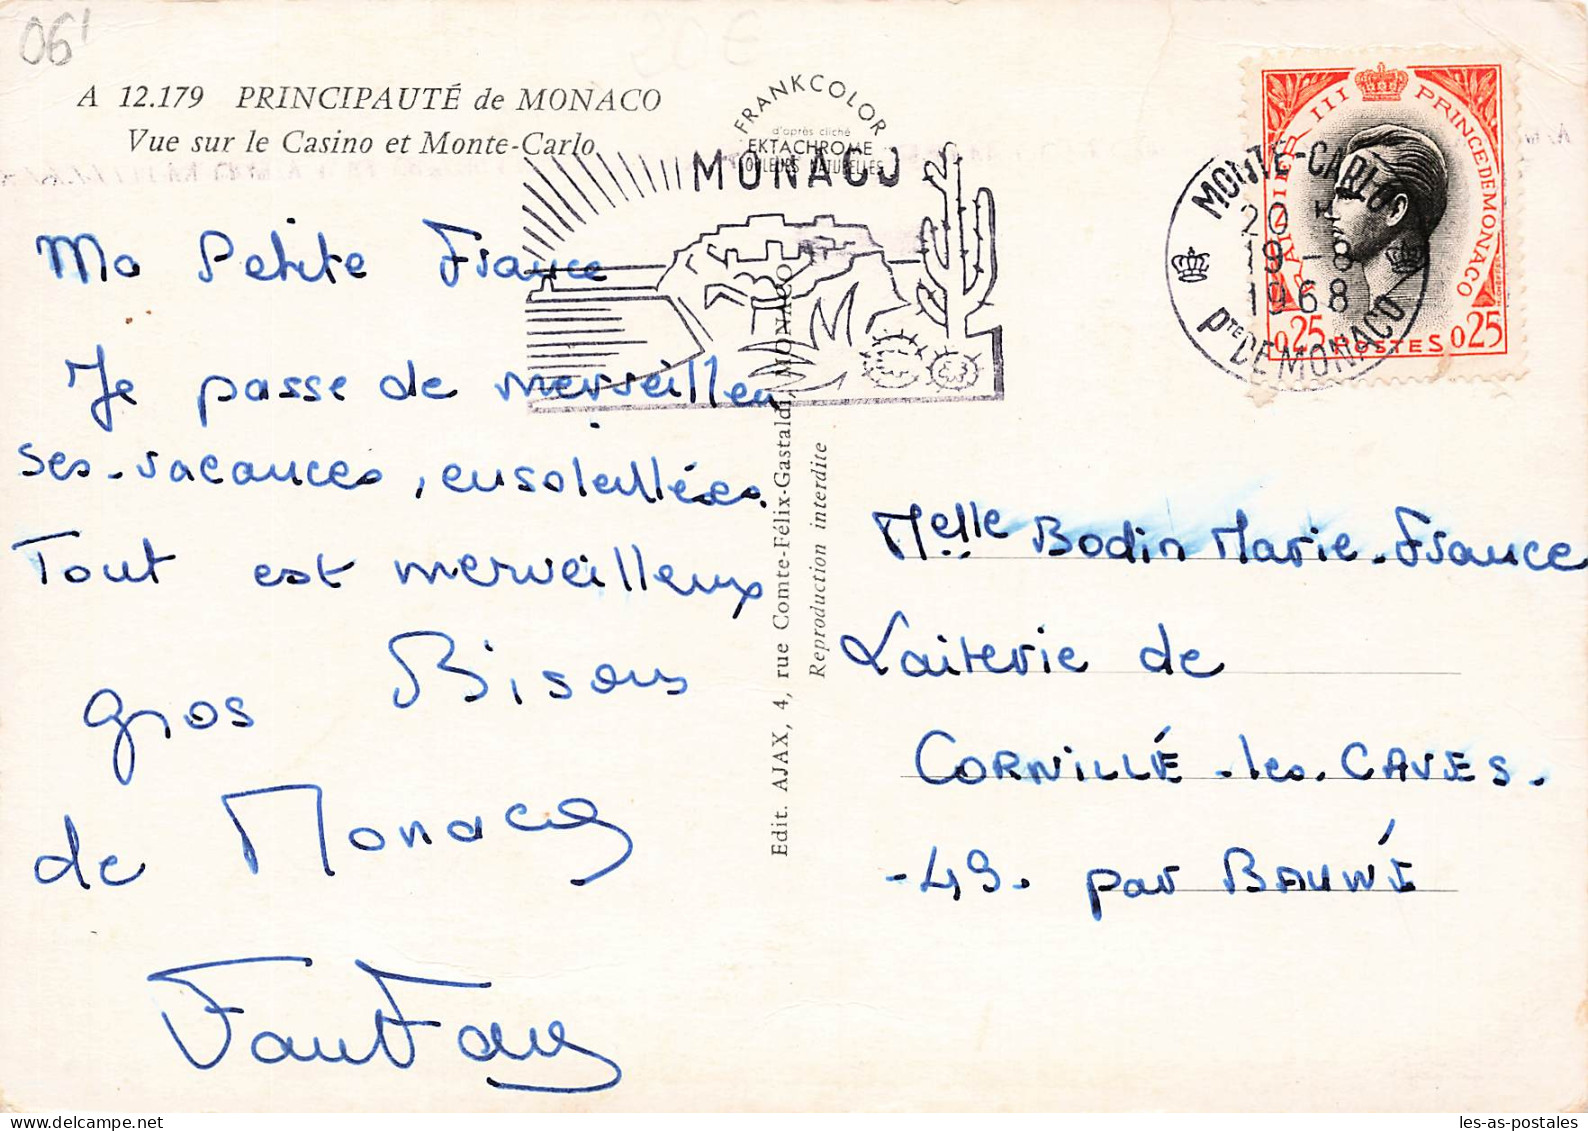 06'
A 12.179 PRINCIPAUTÉ de MONACO
Vue sur le Casino et Monte-Carlo
FRANKCOLOR
d'après cliché
EKTACHROME
COULEURS NATURELLES
MONACO
Ma Petite France
Je passe de merveilleu
ses-vacances, ensoleillées.
Tout est merveilleux
gros Bisous
de Monaco
Edit. AJAX, 4, rue Comte-Félix-Gastaldi, MONACO
Reproduction interdite
RAINIER III PRINCE DE MONACO
0,25 POSTES 0,25
MONTE-CARLO
20 H
19-8
1968
PTE DE MONACO
Melle Bodin Marie-France
Laiterie de
CORNILLÉ-les-CAVES.
-49. par BAUNÉ
les-as-postales